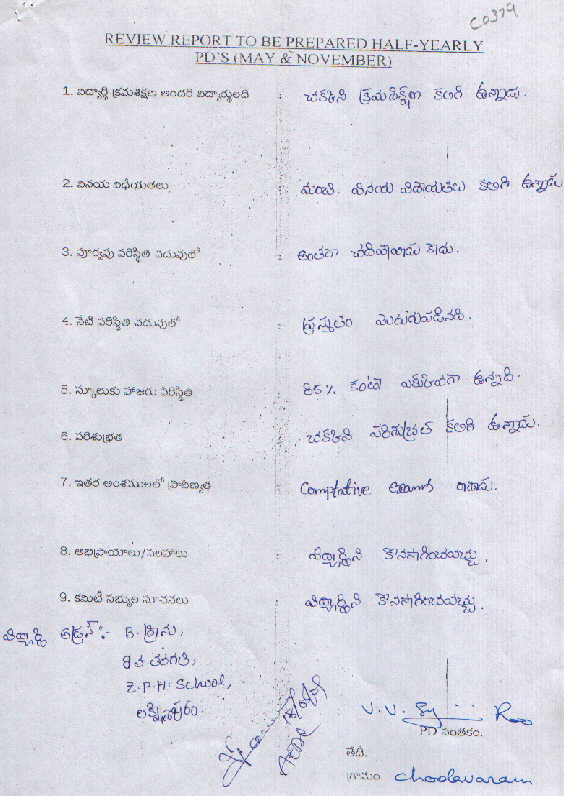 C0379
REVIEW REPORT TO BE PREPARED HALF-YEARLY
PD'S (MAY & NOVEMBER)
1. విద్యార్థి క్రమశిక్షణ అందరి విద్యార్థులది : చక్కని క్రమశిక్షణ కలిగి ఉన్నాడు.
2. వినయ విధేయతలు : మంచి వినయ విధేయతలు కలిగి ఉన్నాడు
3. పూర్వపు పరిస్థితి చదువులో : అంతగా చదివేవాడు కాదు.
4. నేటి పరిస్థితి చదువులో : ప్రస్తుతం మెరుగుపడినది.
5. స్కూలుకు హాజరు పరిస్థితి : 85% కంటె ఎక్కువగా ఉన్నది.
6. పరిశుభ్రత : చక్కని పరిశుభ్రత కలిగి ఉన్నాడు.
7. ఇతర అంశములలో ప్రావీణ్యత : Comptative exams రాశాడు.
8. అభిప్రాయాలు/సలహాలు : విద్యార్థిని కొనసాగించవచ్చు.
9. కమిటీ సభ్యుల సూచనలు : విద్యార్థిని కొనసాగించవచ్చు.
విద్యార్థి అడ్రస్ :- B. శ్రీను,
తరగతి,
Z.P.H. School,
లక్ష్మీపురం.
V.V. Rao
PD సంతకం.
తేది.
గ్రామం Choolavaram